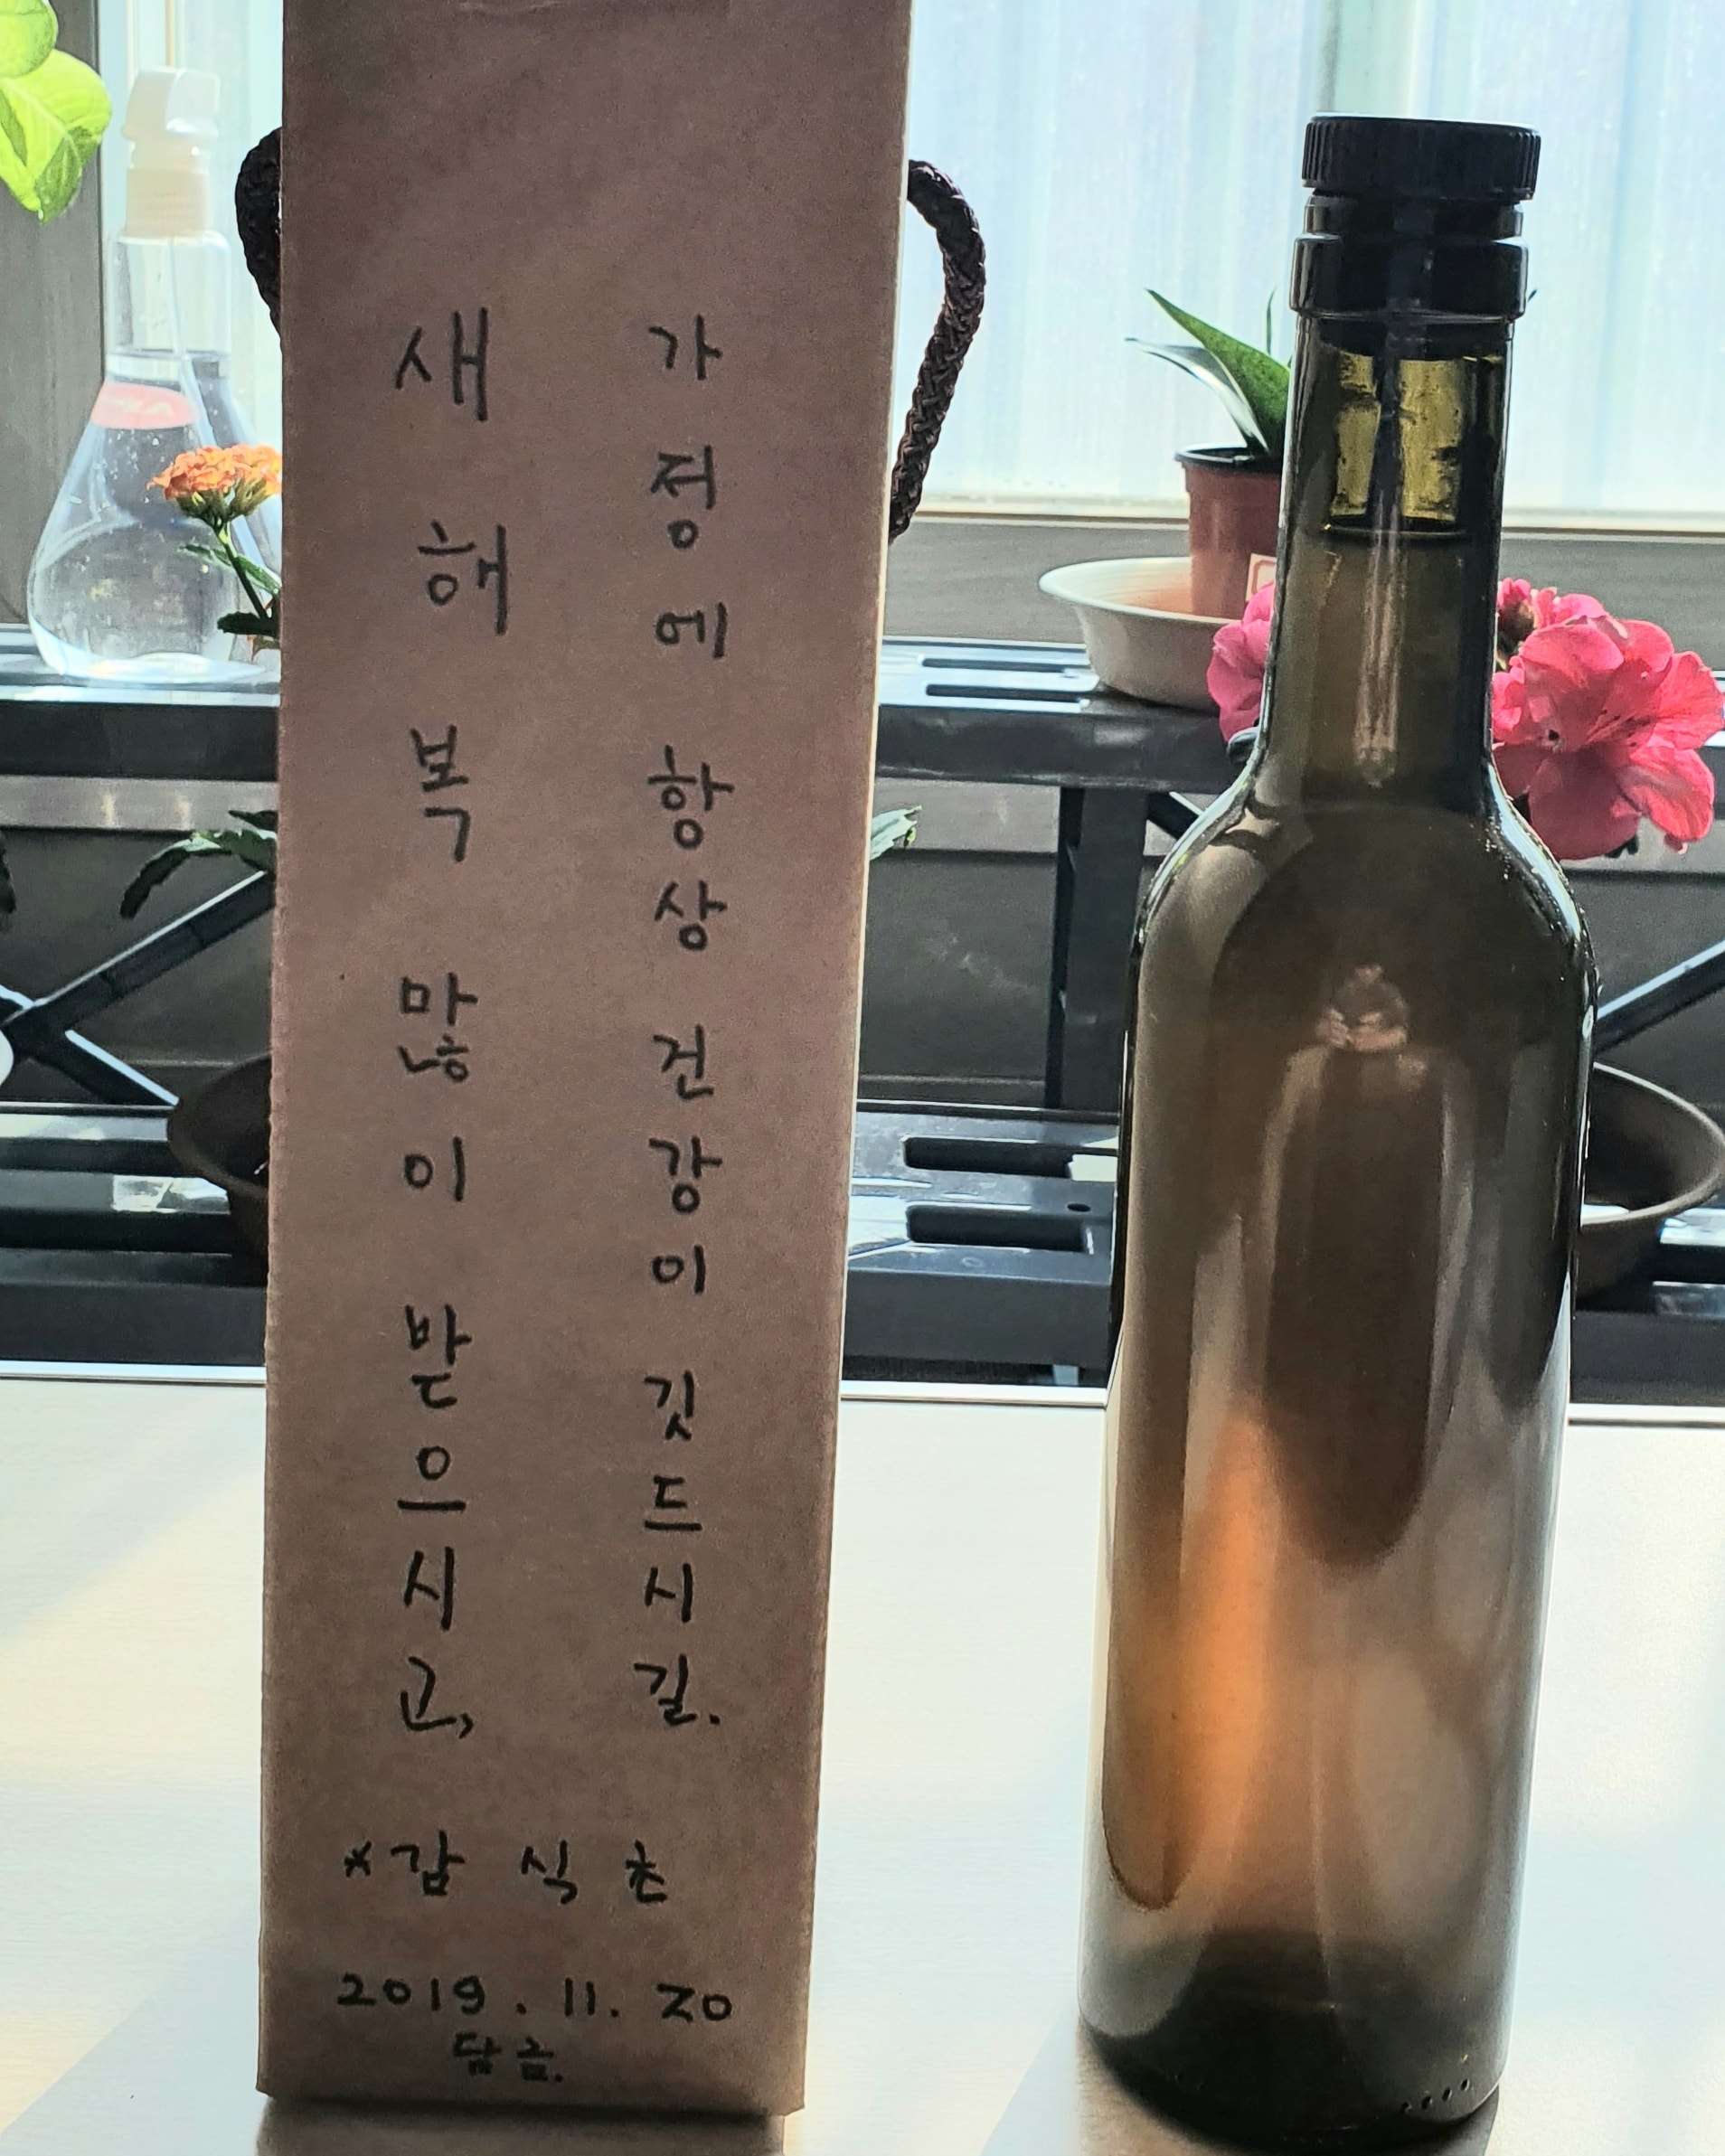 새해 복 많이 받으시고,
가정에 항상 건강이 깃드시길.
*감식초
2019.11.20
담금.